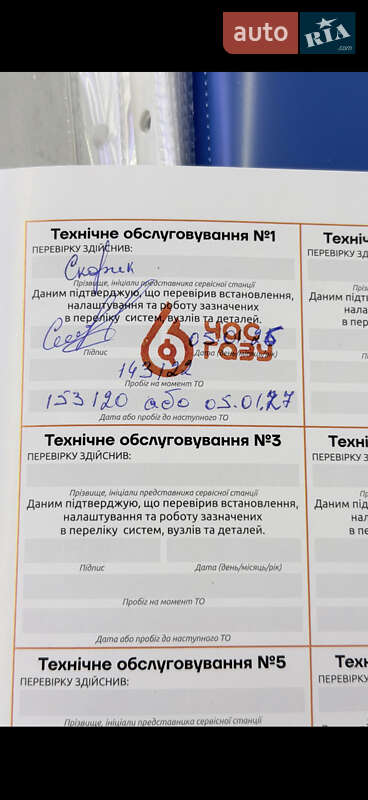 auto RIA .com
Технічне обслуговування №1
ПЕРЕВІРКУ ЗДІЙСНИВ:
Скорик
Прізвище, ініціали представника сервісної станції
Даним підтверджую, що перевірив встановлення,
налаштування та роботу зазначених
в переліку систем, вузлів та деталей.
05.01.26
Підпис Дата (день/місяць/рік)
143122
Пробіг на момент ТО
153120 або 05.01.27
Дата або пробіг до наступного ТО
Технічне обслуговування №3
ПЕРЕВІРКУ ЗДІЙСНИВ:
Прізвище, ініціали представника сервісної станції
Даним підтверджую, що перевірив встановлення,
налаштування та роботу зазначених
в переліку систем, вузлів та деталей.
Підпис Дата (день/місяць/рік)
Пробіг на момент ТО
Дата або пробіг до наступного ТО
Технічне обслуговування №5
ПЕРЕВІРКУ ЗДІЙСНИВ:
Прізвище, ініціали представника сервісної станції